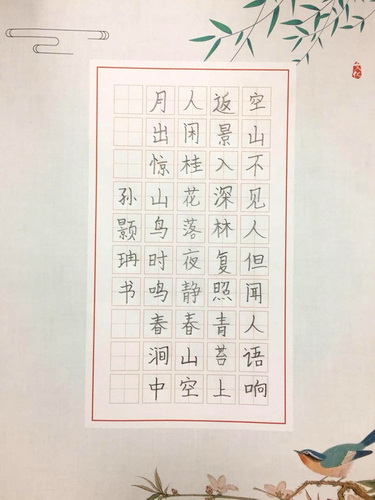 空山不见人但闻人语响
返景入深林复照青苔上
人闲桂花落夜静春山空
月出惊山鸟时鸣春涧中
孙颢珃书